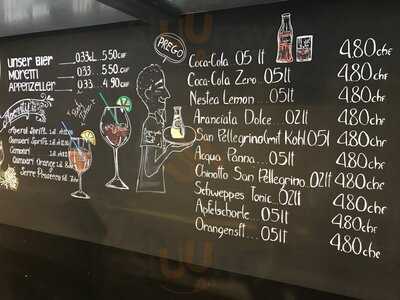 Unser Bier
Moretti 0.33cl. 5.50
Appenzeller 0.33 5.50
0.33 4.90 CHF
PREGO
Aperol Spritz
Campari Spritz
Campari
Campari Orange
Serre Prosecco
Coca-Cola 05 lt 4.80chf
Coca-Cola Zero.05lt 4.80chf
Nestea Lemon....05lt 4.80chf
Aranciata Dolce...02lt 4.80chf
San Pellegrino(mit Kohl05l 4.80chf
Acqua Panna...05lt 4.80chf
Chinotto San Pellegrino.02lt 4.80chf
Schweppes Tonic..02lt 4.80chf
Apfelschorle...05lt 4.80chf
Orangensft...05lt 4.80chf